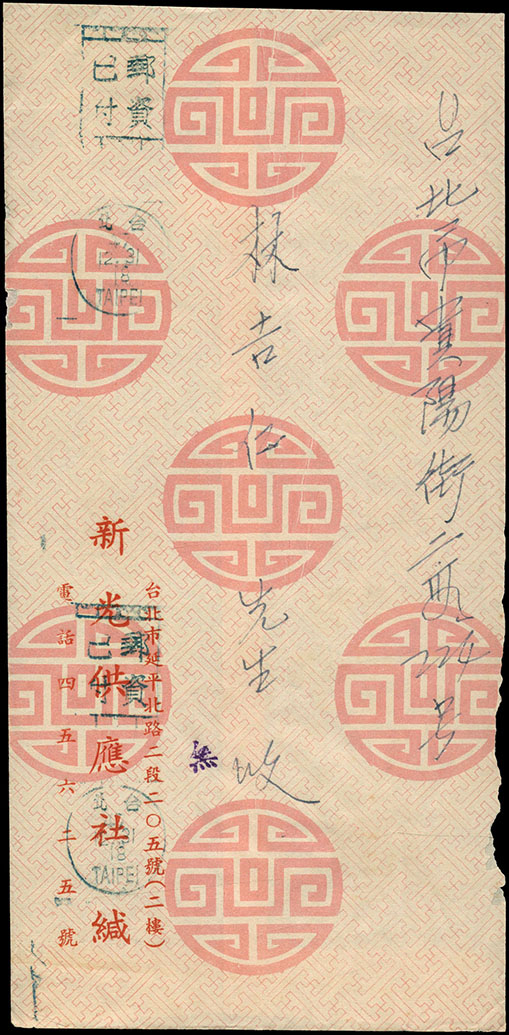 台北市貴陽街二段224号
林吉仁先生收
無
台北市延平北路二段二〇五號(二樓)
新光供應社緘
電話四五六二五號
郵資
已付
台北
18
TAIPEI
郵資
已付
台北
18
TAIPEI